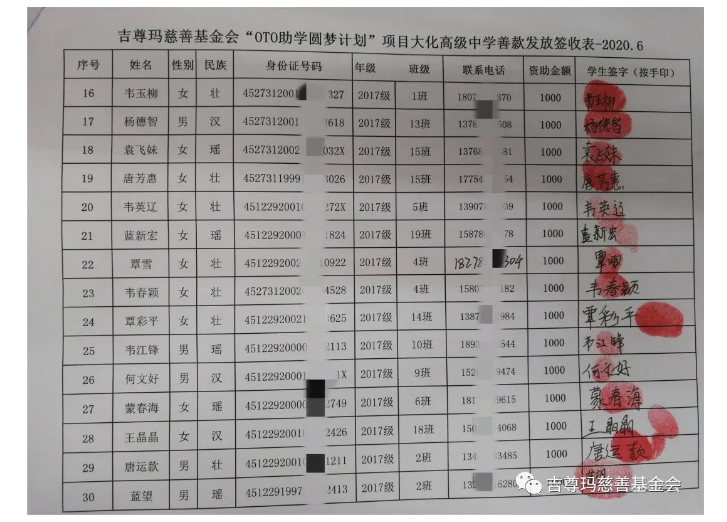 吉尊玛慈善基金会“OTO助学圆梦计划”项目大化高级中学善款发放签收表-2020.6
序号 姓名 性别 民族 身份证号码 年级 班级 联系电话 资助金额 学生签字（按手印）
16 韦玉柳 女 壮 4527312001 327 2017级 1班 1807 870 1000 韦玉柳
17 杨德智 男 汉 4527312001 618 2017级 13班 1378 508 1000 杨德智
18 袁飞妹 女 瑶 4527312002 032X 2017级 15班 13768 81 1000 袁飞妹
19 唐芳惠 女 壮 4527311999 3026 2017级 15班 17754 54 1000 唐芳惠
20 韦英辽 女 壮 4512292001 272X 2017级 5班 13907 39 1000 韦英辽
21 蓝新宏 女 瑶 4512292000 1824 2017级 19班 15878 78 1000 蓝新宏
22 覃雪 女 壮 451229200 10922 2017级 4班 18278 304 1000 覃雪
23 韦春颖 女 壮 452731200 4528 2017级 4班 1580 182 1000 韦春颖
24 覃彩平 女 壮 4512292002 625 2017级 14班 1387 984 1000 覃彩平
25 韦江锋 男 瑶 4512292000 2113 2017级 10班 1893 544 1000 韦江锋
26 何文好 男 汉 451229200 1X 2017级 9班 152 9474 1000 何文好
27 蒙春海 女 瑶 451229200 2749 2017级 6班 181 9615 1000 蒙春海
28 王晶晶 女 汉 451229200 2426 2017级 18班 150 4068 1000 王晶晶
29 唐运款 男 壮 451229200 1211 2017级 2班 134 3485 1000 唐运款
30 蓝望 男 瑶 4512291997 2413 2017级 2班 13 6280 1000
吉尊玛慈善基金会